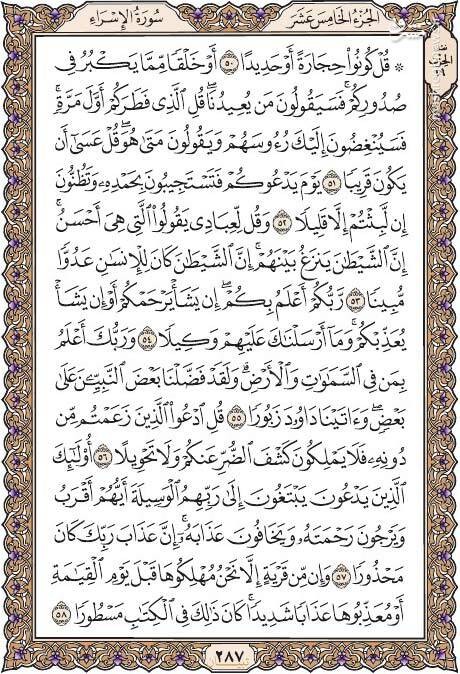 الجزء الخامس عشر
سورة الإسراء
۞ قُلْ كُونُوا۟ حِجَارَةً أَوْ حَدِيدًا ٥٠ أَوْ خَلْقًا مِّمَّا يَكْبُرُ فِى
صُدُورِكُمْ ۚ فَسَيَقُولُونَ مَن يُعِيدُنَا ۖ قُلِ ٱلَّذِى فَطَرَكُمْ أَوَّلَ مَرَّةٍ ۚ
فَسَيُنْغِضُونَ إِلَيْكَ رُءُوسَهُمْ وَيَقُولُونَ مَتَىٰ هُوَ ۖ قُلْ عَسَىٰٓ أَن
يَكُونَ قَرِيبًا ٥١ يَوْمَ يَدْعُوكُمْ فَتَسْتَجِيبُونَ بِحَمْدِهِۦ وَتَظُنُّونَ
إِن لَّبِثْتُمْ إِلَّا قَلِيلًا ٥٢ وَقُل لِّعِبَادِى يَقُولُوا۟ ٱلَّتِى هِىَ أَحْسَنُ ۚ
إِنَّ ٱلشَّيْطَٰنَ يَنزَغُ بَيْنَهُمْ ۚ إِنَّ ٱلشَّيْطَٰنَ كَانَ لِلْإِنسَٰنِ عَدُوًّا
مُّبِينًا ٥٣ رَّبُّكُمْ أَعْلَمُ بِكُمْ ۖ إِن يَشَأْ يَرْحَمْكُمْ أَوْ إِن يَشَأْ
يُعَذِّبْكُمْ ۚ وَمَآ أَرْسَلْنَٰكَ عَلَيْهِمْ وَكِيلًا ٥٤ وَرَبُّكَ أَعْلَمُ
بِمَن فِى ٱلسَّمَٰوَٰتِ وَٱلْأَرْضِ ۗ وَلَقَدْ فَضَّلْنَا بَعْضَ ٱلنَّبِيِّۦنَ عَلَىٰ
بَعْضٍ ۖ وَءَاتَيْنَا دَاوُۥدَ زَبُورًا ٥٥ قُلِ ٱدْعُوا۟ ٱلَّذِينَ زَعَمْتُم مِّن
دُونِهِۦ فَلَا يَمْلِكُونَ كَشْفَ ٱلضُّرِّ عَنكُمْ وَلَا تَحْوِيلًا ٥٦ أُو۟لَٰٓئِكَ
ٱلَّذِينَ يَدْعُونَ يَبْتَغُونَ إِلَىٰ رَبِّهِمُ ٱلْوَسِيلَةَ أَيُّهُمْ أَقْرَبُ
وَيَرْجُونَ رَحْمَتَهُۥ وَيَخَافُونَ عَذَابَهُۥٓ ۚ إِنَّ عَذَابَ رَبِّكَ كَانَ
مَحْذُورًا ٥٧ وَإِن مِّن قَرْيَةٍ إِلَّا نَحْنُ مُهْلِكُوهَا قَبْلَ يَوْمِ ٱلْقِيَٰمَةِ
أَوْ مُعَذِّبُوهَا عَذَابًا شَدِيدًا ۚ كَانَ ذَٰلِكَ فِى ٱلْكِتَٰبِ مَسْطُورًا ٥٨
٢٨٧